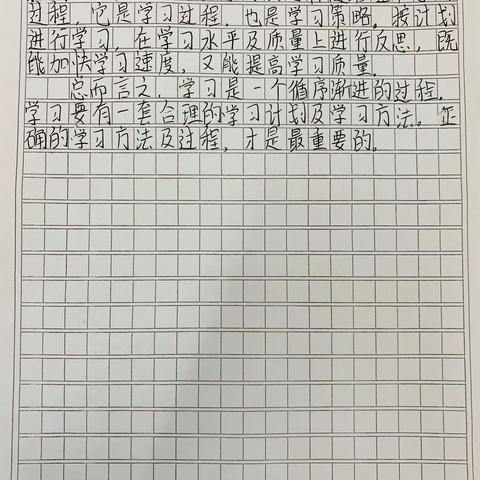 过程，它是学习过程，也是学习策略。按计划
进行学习，在学习水平及质量上进行反思，既
能加快学习速度，又能提高学习质量。
总而言之，学习是一个循序渐进的过程，
学习要有一套合理的学习计划及学习方法。正
确的学习方法及过程，才是最重要的。